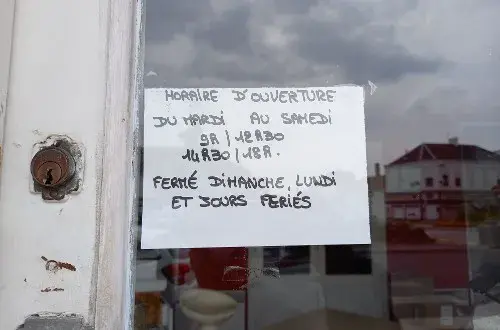 HORAIRE D'OUVERTURE
DU MARDI AU SAMEDI
9H/12H30
14H30/18H.
FERMÉ DIMANCHE, LUNDI
ET JOURS FERIÉS